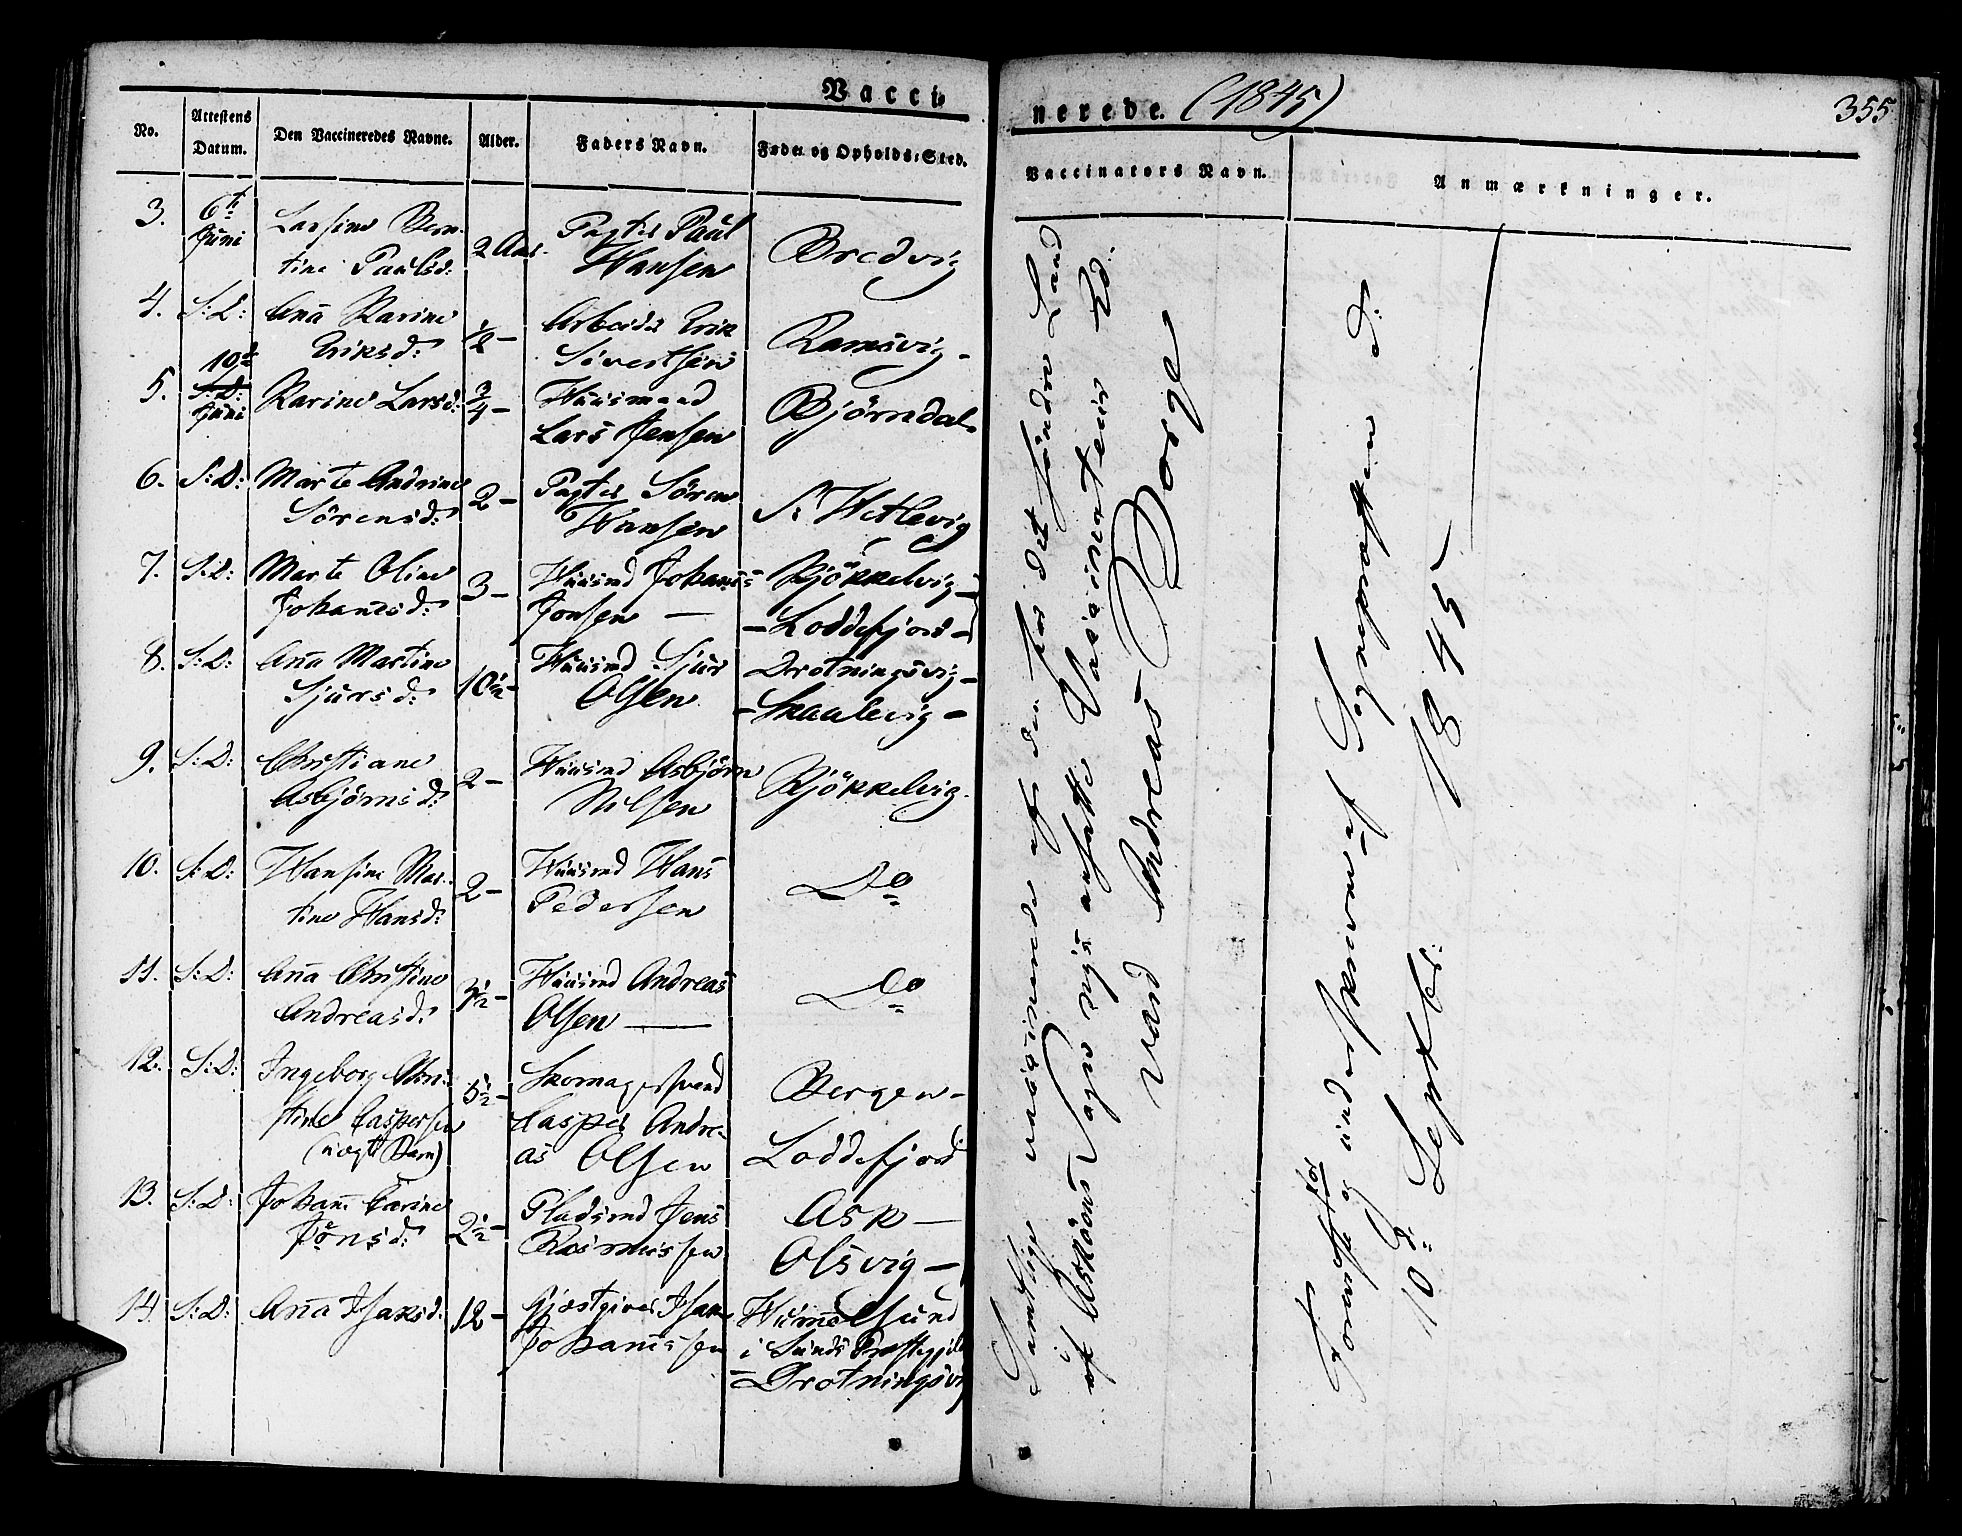 Vacci
nerede. (1845)
355
No.
Attestens Datum.
Den Vaccineredes Navne.
Alder.
Faders Navn.
Føde- og Opholds-Sted.
Vaccinators Navn.
Anmærkninger.
3. 6te Juni
Larsine Bern-
tine Paulsd:
2 Aar.
Pagter Paul
Hansen
Bredvig
4. S:D:
Anna Karine
Eriksd:
1/2 –
Arbeider Erik
Sivertsen
Ramsvig –
5. 10de S:D: Juni
Karine Larsd:
3/4 –
Huusmand
Lars Jensen
Björndal
6. S:D:
Marte Andrine
Sörensd:
2 –
Pagter Sören
Hansen
S: Wetlevig
7. S:D:
Marte Oline
Johannesd:
3 –
Huusmd Johannes
Jonsen –
Kjökkelvig –
– Loddefjord –
8. S:D:
Anna Martine
Sjursd:
10 1/2 –
Huusmd Sjur
Olsen
Drotningsvig –
– Skaalevig –
9. S:D:
Christiane
Asbjörnsd:
2 –
Huusmd Asbjörn
Nilsen
Kjökkelvig.
10. S:D:
Hansine Mar-
tine Hansd:
2 –
Huusmd Hans
Pedersen
Do
11. S:D:
Anna Christine
Andreasd:
3 1/2 –
Huusmd Andreas
Olsen –
Do
12. S:D:
Ingeborg Chri-
stine Caspersen
(uægte Barn)
5 1/2 –
Skomagersvend
Casper Andre-
as Olsen
Bergen –
Loddefjord
13. S:D:
Johanne Carine
Jensd:
2 1/2 –
Pladsmd Jens
Rasmussen
Ask –
Olsvig –
14. S:D:
Anna Isaksd:
12 –
Gjæstgiver Isak
Johannessen
Hummelsund
i Sunds Præstegjeld
– Drotningsvig
Samtlige vaccinerede af den for det søndre Land
af Asköens Sogn nye ansatte Vaccinateur Rd:
vard Andreas Borge
Foreviist for
og underskreven af Sogneprästen d:
10d: Septbr: 1845